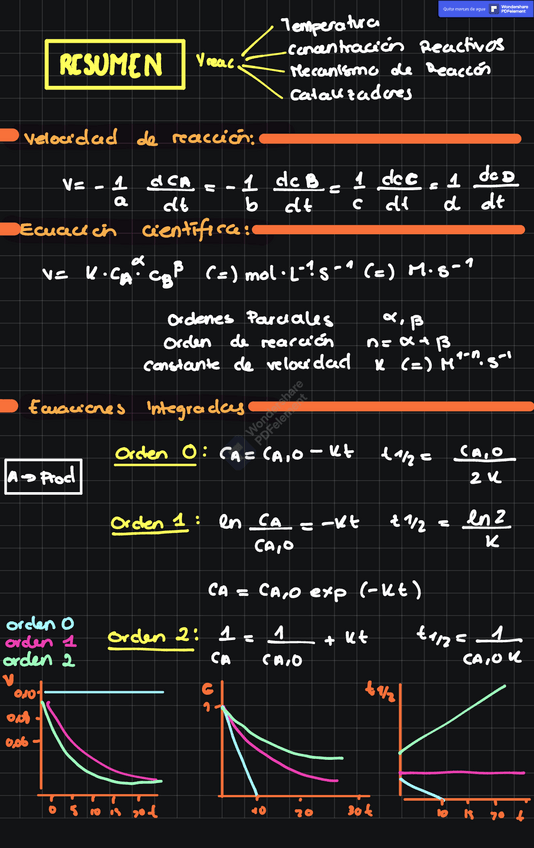 Quitar marcas de agua
Wondershare
PDFelement
RESUMEN
Vreac
Temperatura
Concentración Reactivos
Mecanismo de Reacción
Catalizadores
Velocidad de reacción:
V= - 1/a dCA/dt = - 1/b dcB/dt = 1/c dcC/dt = 1/d dcD/dt
Ecuación científica:
V= K · CA^α · CB^β (=) mol · L⁻¹ · s⁻¹ (=) M · s⁻¹
Ordenes Parciales α, β
Orden de reacción n= α + β
Constante de velocidad K (=) M¹⁻ⁿ · s⁻¹
Ecuaciones Integradas
Wondershare
PDFelement
A → Prod
Orden 0: CA = CA,0 - Kt t1/2 = CA,0/2K
Orden 1: ln CA/CA,0 = -Kt t1/2 = ln2/K
CA = CA,0 exp (-Kt)
orden 0
orden 1
orden 2
Orden 2: 1/CA = 1/CA,0 + Kt t1/2 = 1/CA,0 K
V
0,10
0,06
0 5 10 15 20 t
C
1
10 20 30 t
t1/2
10 15 20 t